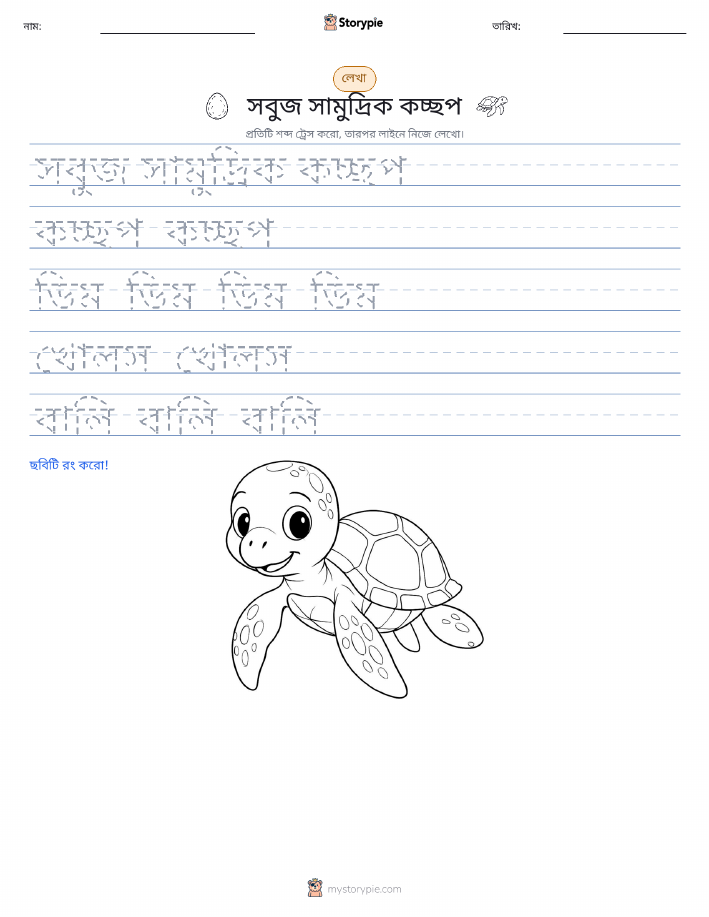 নাম:
Storypie
তারিখ:
লেখা
সবুজ সামুদ্রিক কচ্ছপ
প্রতিটি শব্দ ট্রেস করো, তারপর লাইনে নিজে লেখো।
সবুজ সামুদ্রিক কচ্ছপ
কচ্ছপ কচ্ছপ
ডিম ডিম ডিম ডিম
খোলস খোলস
বালি বালি বালি
ছবিটি রং করো!
mystorypie.com